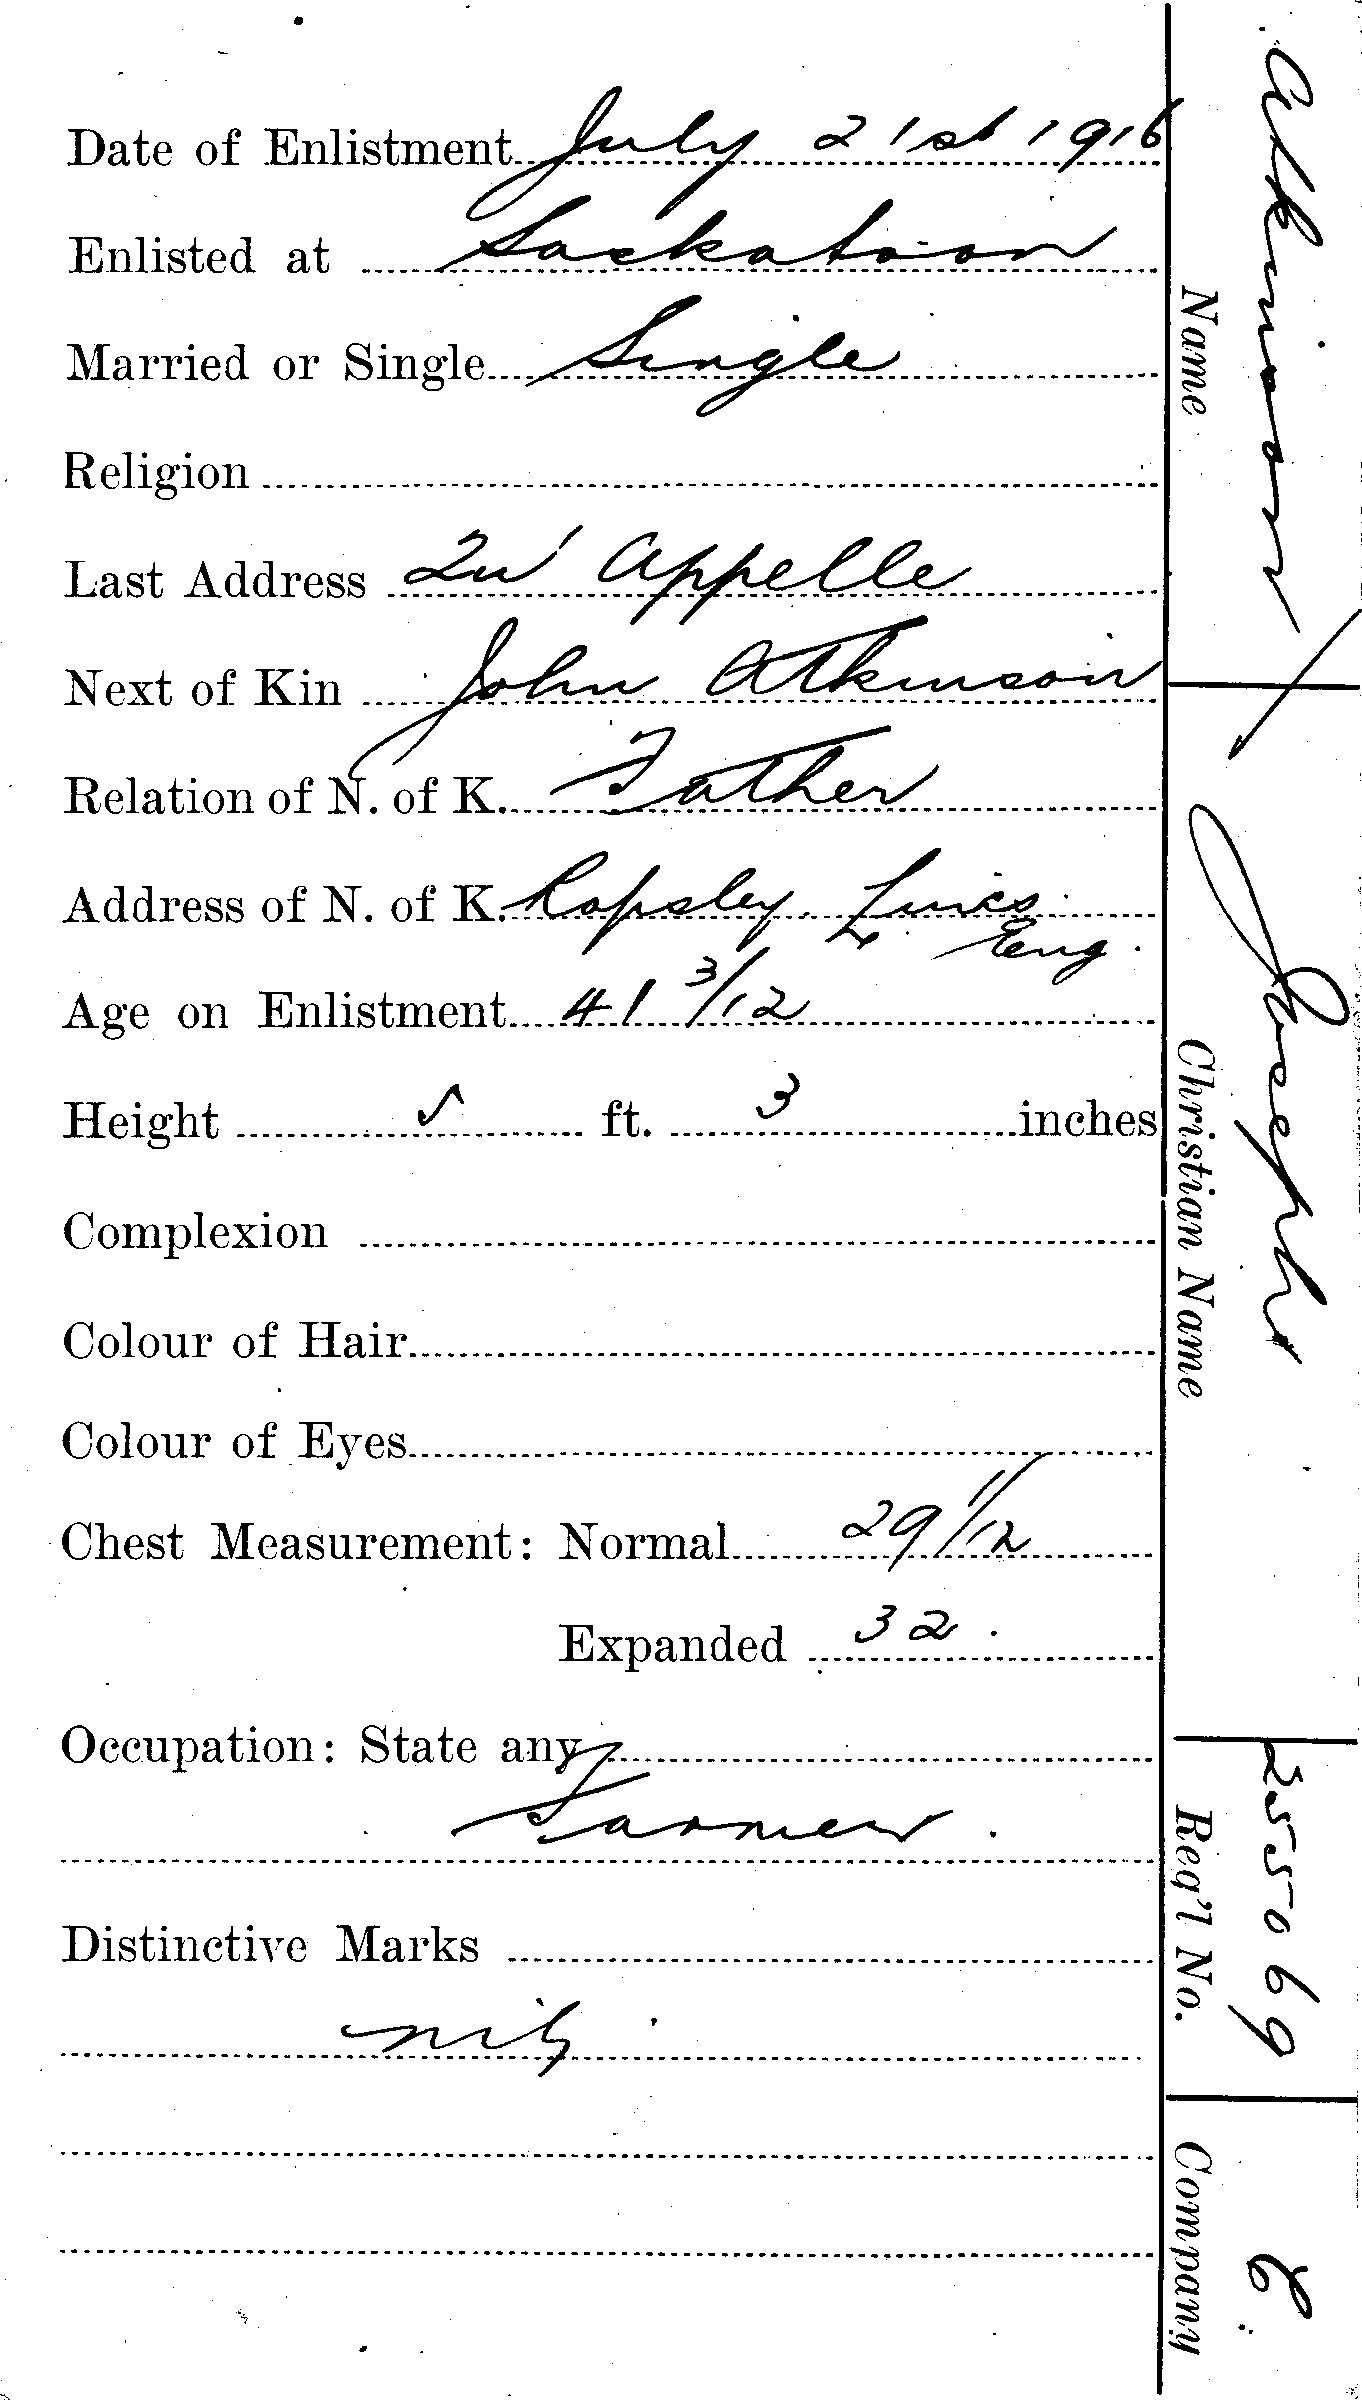 Date of Enlistment July 21st 1916
Enlisted at Saskatoon
Married or Single Single
Religion
Last Address Qu' Appelle
Next of Kin John Atkinson
Relation of N. of K. Father
Address of N. of K. Ropsley. Lincs
Eng.
Age on Enlistment 41 3/12
Height 5 ft. 3 inches
Complexion
Colour of Hair
Colour of Eyes
Chest Measurement: Normal 29 11/12
Expanded 32.
Occupation: State any
Farmer.
Distinctive Marks
nil
Atkinson
Name
Joseph
Christian Name
255069
Reg'l No.
Company